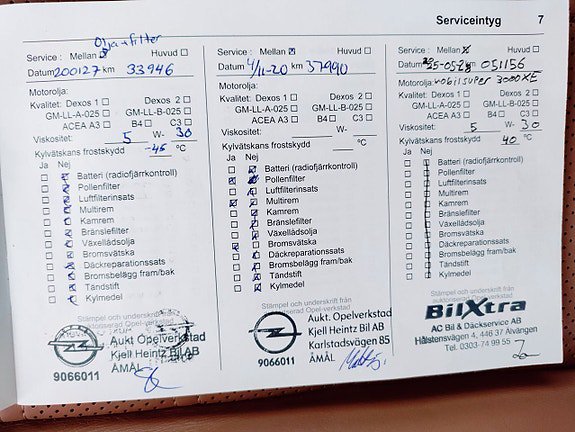 Serviceintyg 7
Olja+filter
Service : Mellan Huvud
Datum 200127 km 33946
Motorolja:
Kvalitet: Dexos 1 Dexos 2
GM-LL-A-025 GM-LL-B-025
ACEA A3 B4 C3
Viskositet: 5 W- 30
Kylvätskans frostskydd -45 °C
Ja Nej
Batteri (radiofjärrkontroll)
Pollenfilter
Luftfilterinsats
Multirem
Kamrem
Bränslefilter
Växellådsolja
Bromsvätska
Däckreparationssats
Bromsbelägg fram/bak
Tändstift
Kylmedel
Stämpel och underskrift från
auktoriserad Opel-verkstad
Aukt. Opelverkstad
Kjell Heintz Bil AB
ÅMÅL
9066011
Service : Mellan Huvud
Datum 4/11-20 km 37990
Motorolja:
Kvalitet: Dexos 1 Dexos 2
GM-LL-A-025 GM-LL-B-025
ACEA A3 B4 C3
Viskositet: W-
Kylvätskans frostskydd °C
Ja Nej
Batteri (radiofjärrkontroll)
Pollenfilter
Luftfilterinsats
Multirem
Kamrem
Bränslefilter
Växellådsolja
Bromsvätska
Däckreparationssats
Bromsbelägg fram/bak
Tändstift
Kylmedel
Stämpel och underskrift från
auktoriserad Opel-verkstad
Aukt. Opelverkstad
Kjell Heintz Bil AB
Karlstadsvägen 85
ÅMÅL
9066011
Service : Mellan Huvud
Datum km 051156
Motorolja: mobil super 3000 XE
Kvalitet: Dexos 1 Dexos 2
GM-LL-A-025 GM-LL-B-025
ACEA A3 B4 C3
Viskositet: 5 W- 30
Kylvätskans frostskydd 40 °C
Ja Nej
Batteri (radiofjärrkontroll)
Pollenfilter
Luftfilterinsats
Multirem
Kamrem
Bränslefilter
Växellådsolja
Bromsvätska
Däckreparationssats
Bromsbelägg fram/bak
Tändstift
Kylmedel
Stämpel och underskrift från
BilXtra
AC Bil & Däckservice AB
Hålstensvägen 4, 446 37 Älvängen
Tel. 0303-74 99 55